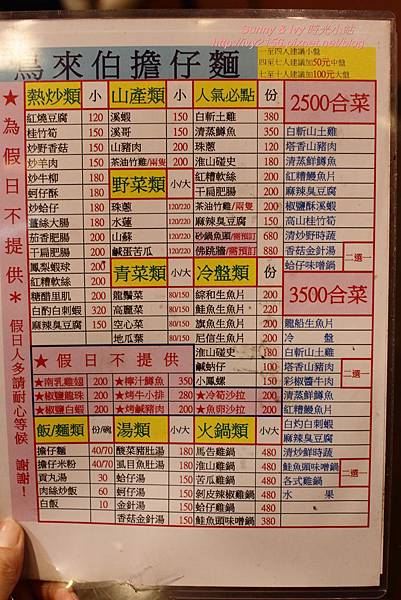 Sunny & Ivy 時光小站
http://ivy2156.pixnet.net/blog
烏來伯擔仔麵
一至四人建議小盤
五至七人建議加50元中盤
七至十人建議加100元大盤
★為假日不提供★
假日人多請耐心等候 謝謝！
熱炒類 小
紅燒豆腐 120
桂竹筍 150
炒野香菇 150
炒羊肉 150
炒牛柳 180
蚵仔酥 180
炒蛤仔 180
薑絲大腸 180
茄香肥腸 180
干扁肥腸 200
鳳梨蝦球 200
紅糟軟絲 200
糖醋里肌 200
白酌草蝦 320
麻辣臭豆腐 150
山產類 小
溪蝦 150
溪哥 150
山豬肉 200
茶油竹雞/兩隻 200
野菜類 小/大
珠蔥 120/220
水蓮 120/220
山蘇 120/220
鹹蛋苦瓜 120/220
青菜類 小/大
龍鬚菜 80/150
高麗菜 80/150
空心菜 80/150
地瓜葉 80/150
人氣必點 份
白斬土雞 380
清蒸鱒魚 350
珠蔥 120
淮山碰史 180
紅糟軟絲 200
干扁肥腸 200
茶油竹雞/兩隻 200
麻辣臭豆腐 150
砂鍋魚頭/需預訂 680
佛跳牆/需預訂 880
冷盤類 份
綜和生魚片 200
鮭魚生魚片 200
旗魚生魚片 200
尼信生魚片 200
淮山碰史 180
鹹蚋仔 100
小鳳螺 150
★冷筍沙拉 200
★魚卵沙拉 200
★假日不提供
★南乳雞翅 200
★椒鹽龍珠 200
★椒鹽白蝦 200
★檸汁鱒魚 350
★烤牛小排 280
★烤鹹豬肉 200
飯/麵類 份/碗
擔仔麵 40/70
擔仔米粉 40/70
貢丸湯 30
肉絲炒飯 60
白飯 10
湯類 小/大
酸菜豬肚湯 180
虱目魚肚湯 180
蛤仔湯 150
蚵仔湯 150
金針湯 150
香菇金針湯 150
火鍋類 小/大
馬告雞鍋 480
淮山雞鍋 480
苦瓜雞鍋 480
剝皮辣椒雞鍋 480
蛤仔雞鍋 480
鮭魚頭味噌鍋 380
2500合菜
白斬山土雞
塔香山豬肉
清蒸鱒魚
紅糟鰻魚片
麻辣臭豆腐
椒鹽酥溪蝦
高山桂竹筍
清炒野時蔬
香菇金針湯
蛤仔味噌鍋
二選一
3500合菜
龍船生魚片
冷盤
白斬山土雞
塔香山豬肉
彩椒醬牛肉
二選一
清蒸鱒魚
紅糟鰻魚片
白灼白刺蝦
麻辣臭豆腐
清炒鮮時蔬
鮭魚頭味噌鍋
各式雞鍋
二選一
水果